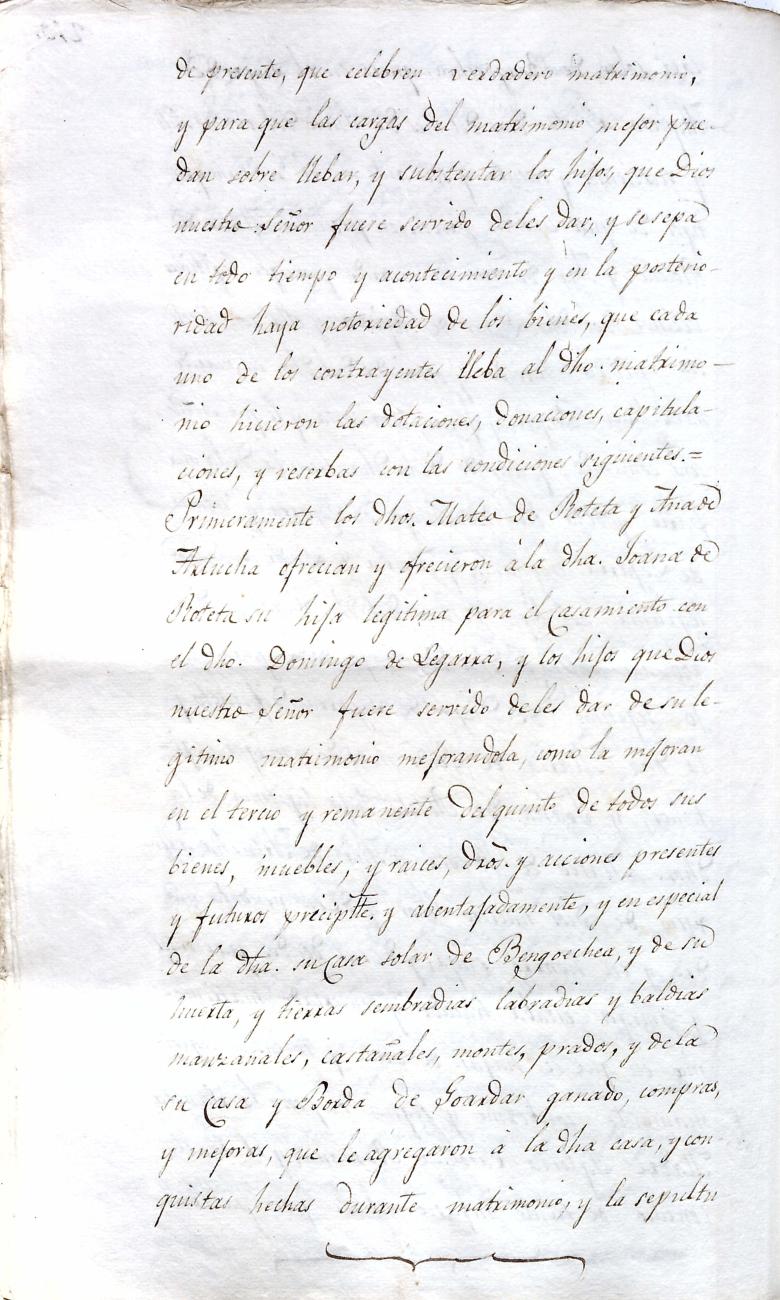 de presente, que celebren verdadero matrimonio,
y para que las cargas del matrimonio mejor pue-
dan sobre llebar, y substentar los hijos, que Dios
nuestro Señor fuere servido deles dar, y se sepa
en todo tiempo y acontecimiento y en la posterio-
ridad haya notoriedad de los bienes, que cada
uno de los contrayentes lleba al dho. matrimo-
nio hicieron las dotaciones, donaciones, capitula-
ciones, y reserbas con las condiciones siguientes.=
Primeramente los dhos. Mateo de Roteta y Ana de
Artucha ofrecian y ofrecieron à la dha. Joana de
Roteta su hija legitima para el casamiento con
el dho. Domingo de Legarra, y los hijos que Dios
nuestro Señor fuere servido deles dar de su le-
gitimo matrimonio mejorandola, como la mejoran
en el tercio y remanente del quinto de todos sus
bienes, muebles, y raices, dros. y acciones presentes
y futuros precipTte. y abentajadamente, y en especial
de la dha. su Casa solar de Bengoechea, y de su
huerta, y tierras sembradias labradias y baldias
manzanales, castañales, montes, prados, y de la
su Casa y Borda de Goardar ganado, compras,
y mejoras, que le agregaron à la dha casa, y con-
quistas hechas durante matrimonio, y la sepultu